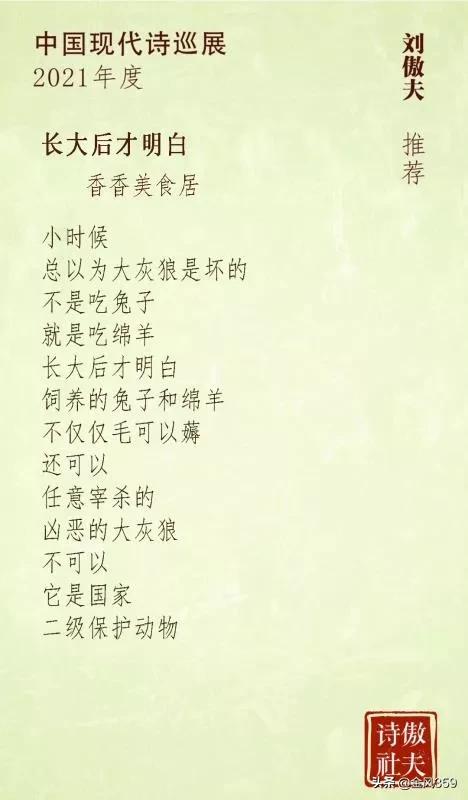 中国现代诗巡展
2021年度
刘傲夫 推荐
长大后才明白
香香美食居
小时候
总以为大灰狼是坏的
不是吃兔子
就是吃绵羊
长大后才明白
饲养的兔子和绵羊
不仅仅毛可以薅
还可以
任意宰杀的
凶恶的大灰狼
不可以
它是国家
二级保护动物
傲夫诗社
头条 @金风359